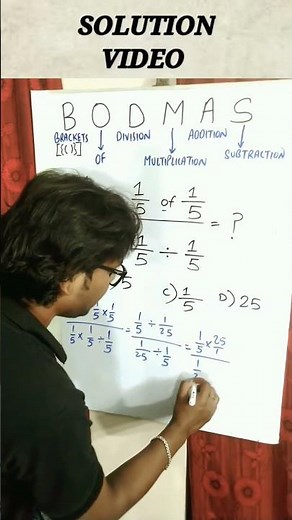 SOLUTION
VIDEO
B O D M A S
BRACKETS DIVISION ADDITION
[{()}] OF MULTIPLICATION SUBTRACTION
1/5 of 1/5
= ?
1/5 ÷ 1/5
5 C) 1/5 D) 25
1/5 × 1/5 / 1/5 × 1/5 ÷ 1/5 = 1/5 ÷ 1/25 / 1/25 ÷ 1/5 = 1/5 × 25/1 / 1/2